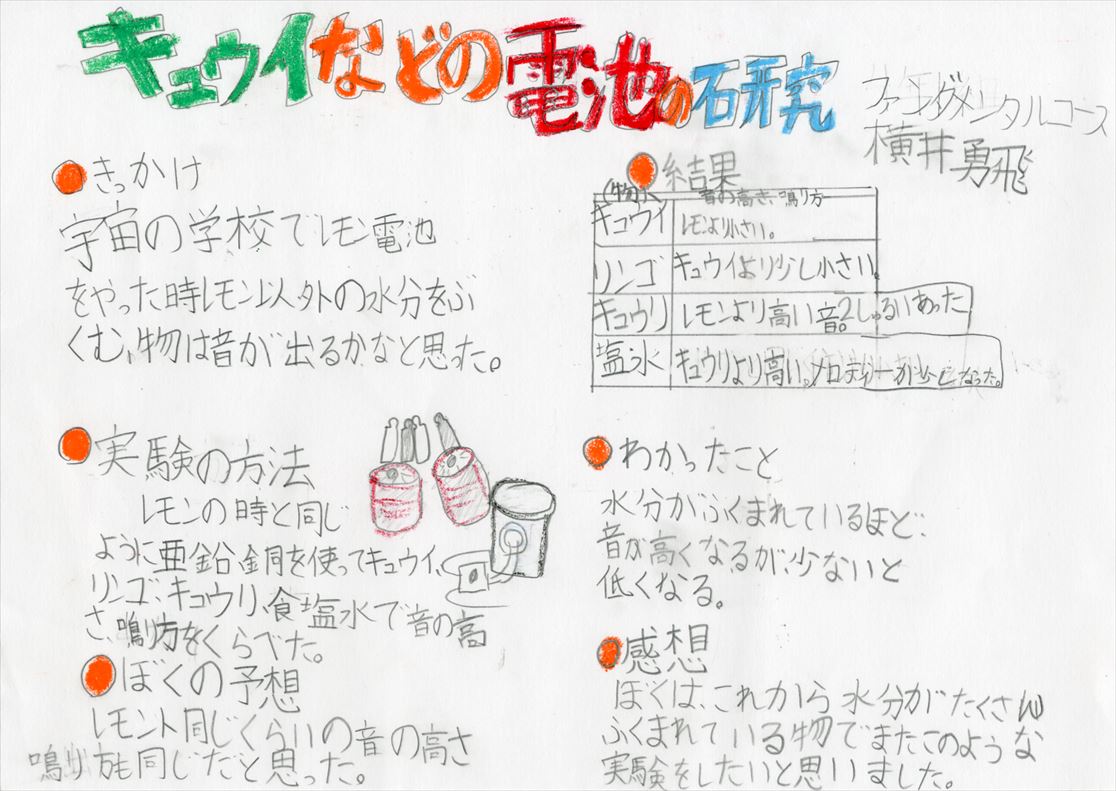 キュウイなどの電池の研究
ファンダメンタルコース
横井勇飛
きっかけ
宇宙の学校でレモン電池
をやった時レモン以外の水分をふ
くむ、物は音が出るかなと思った。
実験の方法
レモンの時と同じ
ように亜鉛、銅を使ってキュウイ、
リンゴ、キュウリ、食塩水で音の高
さ、鳴り方をくらべた。
ぼくの予想
レモント同じくらいの音の高さ
鳴り方も同じだと思った。
結果
(物) 音の高さ、鳴り方
キュウイ レモンより小さい。
リンゴ キュウイより少し小さい
キュウリ レモンより高い音。2しゅるいあった
塩水 キュウリより高い。メロディーが少しなった。
わかったこと
水分がふくまれているほど、
音が高くなるが、少ないと
低くなる。
感想
ぼくは、これから水分がたくさん
ふくまれている物でまたこのような
実験をしたいと思いました。